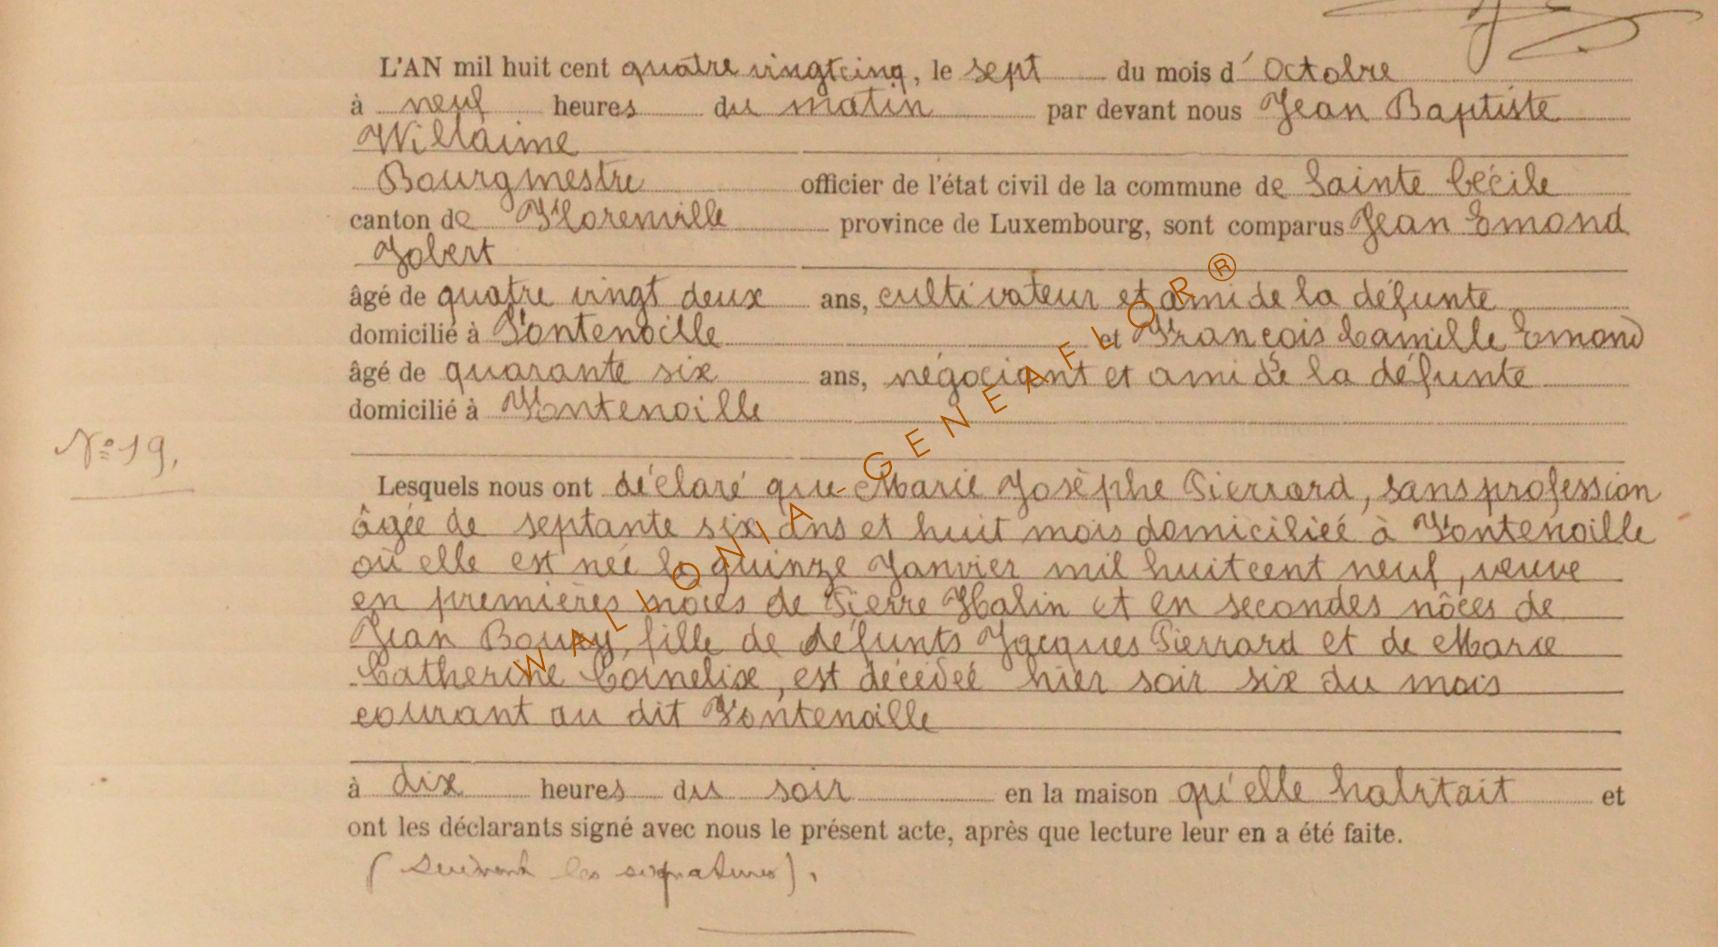 L'AN mil huit cent quatre vingtcinq, le sept du mois d' Octobre
à neuf heures du matin par devant nous Jean Baptiste
Willaime
Bourgmestre officier de l'état civil de la commune de Sainte Cécile
canton de Florenville province de Luxembourg, sont comparus Jean Emond
Jobert
âgé de quatre vingt deux ans, cultivateur et ami de la défunte
domicilié à Fontenoille et François Camille Emond
âgé de quarante six ans, négociant et ami de la défunte
domicilié à Fontenoille
N° 19,
Lesquels nous ont déclaré que Marie Josèphe Pierrard, sans profession
âgée de septante six ans et huit mois domiciliée à Fontenoille
où elle est née le quinze Janvier mil huitcent neuf, veuve
en premières noces de Pierre Halin et en secondes nôces de
Jean Bouvy, fille de défunts Jacques Pierrard et de Marie
Catherine Cornelix, est décédée hier soir six du mois
courant au dit Fontenoille
à dix heures du soir en la maison qu'elle habitait et
ont les déclarants signé avec nous le présent acte, après que lecture leur en a été faite.
(Suivent les signatures).
WALLONIA-GENEAFLOR®